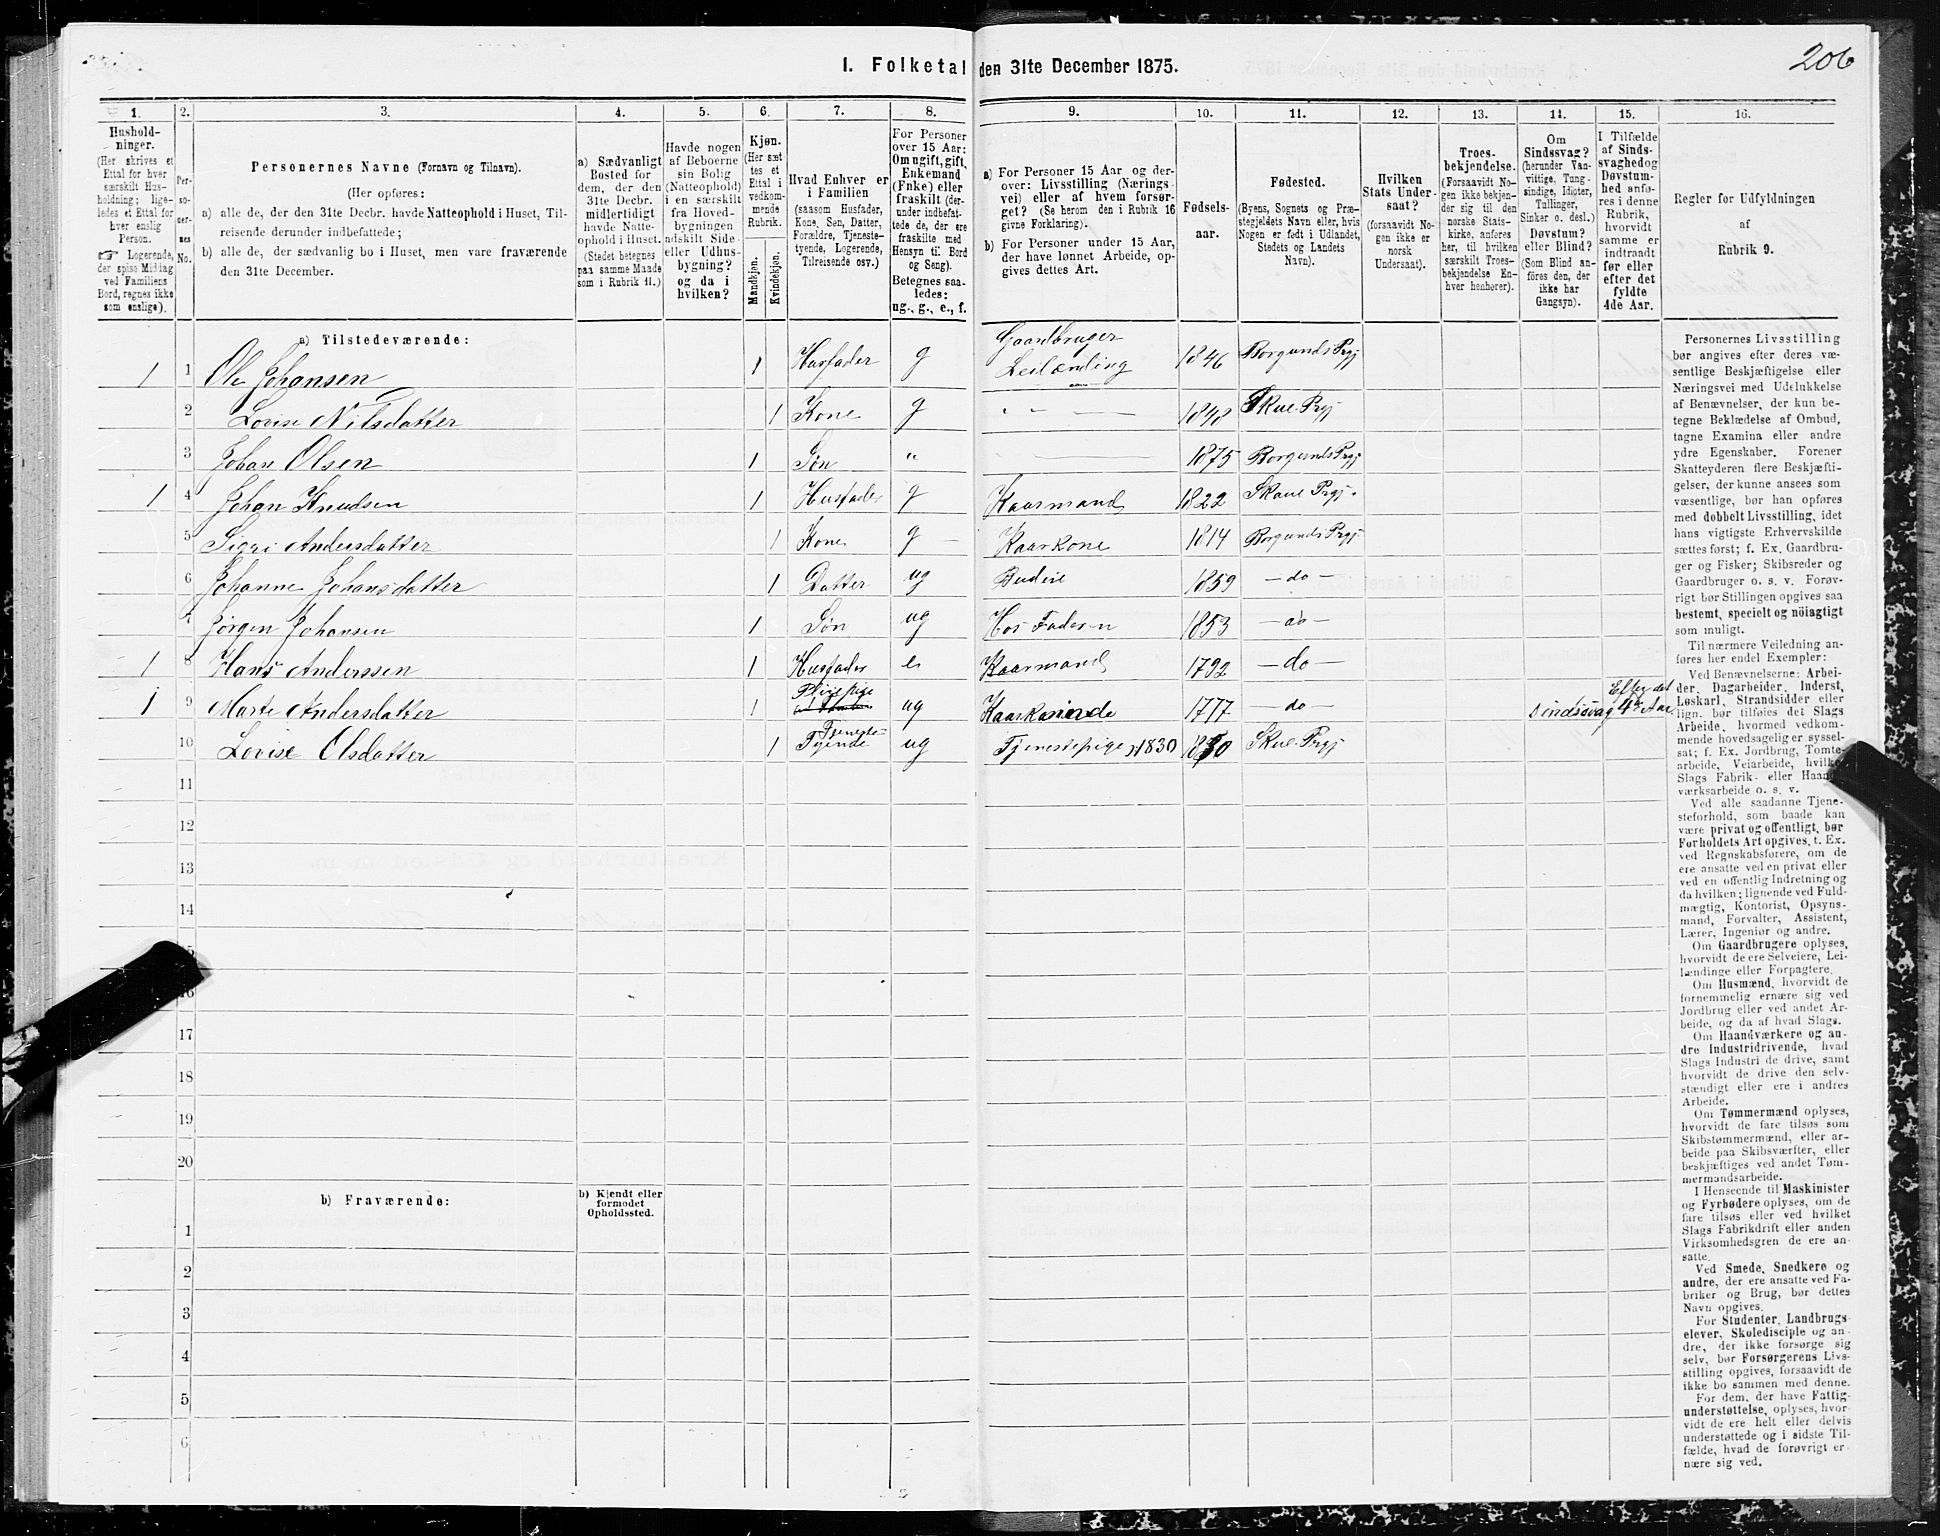 206
I. Folketal den 31te December 1875.
1. 2. 3. 4. 5. 6. 7. 8. 9. 10. 11. 12. 13. 14. 15. 16.
Hushold-
ninger.
(Her skrives et
Ettal for hver
særskilt Hus-
holdning; lige-
ledes et Ettal for
hver enslig
Person.
☞ Logerende,
der spise Middag
ved Familiens
Bord, regnes ikke
som enslige).
Per-
so-
ner-
nes
No.
Personernes Navne (Fornavn og Tilnavn).
(Her opføres:
a) alle de, der den 31te Decbr. havde Natteophold i Huset, Til-
reisende derunder indbefattede;
b) alle de, der sædvanlig bo i Huset, men vare fraværende
den 31te December.
a) Sædvanligt
Bosted for
dem, der den
31te Decbr.
midlertidigt
havde Natte-
ophold i Huset.
(Stedet betegnes
paa samme Maade
som i Rubrik 11.)
Havde nogen
af Beboerne
sin Bolig
(Natteophold)
i en særskilt
fra Hoved-
bygningen
adskilt Side-
eller Udhus-
bygning?
og da i
hvilken?
Kjøn.
(Her sæt
tes et
Ettal i
vedkom-
mende
Rubrik.
Mandkjøn.
Kvindekjøn.
Hvad Enhver er
i Familien
(saasom Husfader,
Kone, Søn, Datter,
Forældre, Tjeneste-
tyende, Logerende,
Tilreisende osv.)
For Personer
over 15 Aar:
Om ugift, gift,
Enkemand
(Enke) eller
fraskilt (der-
under indbefat-
tede de, der ere
fraskilte med
Hensyn til Bord
og Seng).
Betegnes saa-
ledes:
ug., g., e., f.
a) For Personer 15 Aar og der-
over: Livsstilling (Nærings-
vei) eller af hvem forsør-
get? (Se herom den i Rubrik 16
givne Forklaring).
b) For Personer under 15 Aar,
der have lønnet Arbeide, op-
gives dettes Art.
Fødsels-
aar.
Fødested.
(Byens, Sognets og Præ-
stegjeldets Navn eller, hvis
Nogen er født i Udlandet,
Stedets og Landets
Navn).
Hvilken
Stats Under-
saat?
(forsaavidt No-
gen ikke er
norsk
Undersaat).
Troes-
bekjendelse.
(Forsaavidt No-
gen ikke bekjen-
der sig til den
norske Stats-
kirke, anføres
her, til hvilken
særskilt Troes-
bekjendelse En-
hver henhører).
Om
Sindssvag?
(herunder Van-
vittige, Tung-
sindige, Idioter,
Tullinger,
Sinker o. desl.)
Døvstum?
eller Blind?
(Som Blind an-
føres den, der
ikke har
Gangsyn).
I Tilfælde
af Sinds-
svaghed og
Døvstum-
hed anfø-
res i denne
Rubrik,
hvorvidt
samme er
indtraadt
før eller
efter det
fyldte
4de Aar.
Regler for Udfyldningen
af
Rubrik 9.
a) Tilstedeværende:
1 1 Ole Johansen 1 Husfader g Gaardbruger Leilænding 1846 Borgunds Prgj
2 Lovise Nilsdatter 1 Kone g " - — 1848 Skue Prgj
3 Johan Olsen 1 Søn " 1875 Borgunds Prgj
1 4 Johan Knudsen 1 Husfader g Kaarmand 1822 Skaue Prgj.
5 Sigri Andersdatter 1 Kone g – Kaarkone 1814 Borgunds Prgj
6 Johanne Johansdatter 1 Datter ug Budeie 1859 – do –
7 Jørgen Johansen 1 Søn ug Hos Faderen 1853 – do –
1 8 Hans Anderssen 1 Husfader e Kaarmand 1792 – do –
1 9 Marte Andersdatter 1 Pleiepige ug Kaarkvinde 1777 – do – Sindssvag Efter det 4de Aar
10 Lovise Olsdatter 1 Tjeneste Tyende ug Tjenestepige 1830 1830 Skue Prgj
11
12
13
14
15
16
17
18
19
20
b) Fraværende:
b) Kjendt eller
formodet
Opholdssted.
1
2
3
4
5
6
Personernes Livsstilling
bør angives efter deres væ-
sentlige Beskjæftigelse eller
Næringsvei med Udelukkelse
af Benævnelser, der kun be-
tegne Beklædelse af Ombud,
tagne Examina eller andre
ydre Egenskaber. Forener
Skatteyderen flere Beskjæfti-
gelser, der kunne ansees som
væsentlige, bør han opføres
med dobbelt Livsstilling, idet
hans vigtigste Erhvervskilde
sættes først; f. Ex. Gaardbru-
ger og Fisker; Skibsreder og
Gaardbruger o. s. v. Forøv-
rigt bør Stillingen opgives saa
bestemt, specielt og nöiagtigt
som muligt.
Til nærmere Veiledning an-
føres her endel Exempler:
Ved Benævnelserne: Arbei-
der, Dagarbeider, Inderst,
Løskarl, Strandsidder eller
lign. bør tilføies det Slags
Arbeide, hvormed vedkom-
mende hovedsagelig er syssel-
sat; f. Ex. Jordbrug, Tomte-
arbeide, Veiarbeide, hvilket
Slags Fabrik- eller Haand-
værksarbeide o. s. v.
Ved alle saadanne Tjene-
steforhold, som baade kan
være privat og offentligt, bør
Forholdets Art opgives, t. Ex.
ved Regnskabsførere, om de
ere ansatte ved en privat eller
ved en offentlig Indretning og
da hvilken; lignende ved Fuld-
mægtig, Kontorist, Opsyns-
mand, Forvalter, Assistent,
Lærer, Ingeniør og andre.
Om Gaardbrugere oplyses,
hvorvidt de ere Selveiere, Lei-
lændinge eller Forpagtere.
Om Husmænd, hvorvidt de
fornemmelig ernære sig ved
Jordbrug eller ved andet Ar-
beide, og da af hvad Slags.
Om Haandværkere og an-
dre Industridrivende, hvad
Slags Industri de drive, samt
hvorvidt de drive den selv-
stændigt eller ere i andres
Arbeide.
Om Tømmermænd oplyses,
hvorvidt de fare tilsøs som
Skibstømmermænd, eller ar-
beide paa Skibsværfter, eller
beskjæftiges ved andet Tøm-
mermandsarbeide.
I Henseende til Maskinister
og Fyrbødere oplyses, om de
fare tilsøs eller ved hvilket
Slags Fabrikdrift eller anden
Virksomhedsgren de ere an-
satte.
Ved Smede, Snedkere og
andre, der ere ansatte ved Fa-
briker og Brug, bør dettes
Navn opgives.
For Studenter, Landbrugs-
elever, Skoledisciple og an-
dre, der ikke forsørge sig
selv, bør Forsørgerens Livs-
stilling opgives, forsaavidt de
ikke bo sammen med denne.
For dem, der have Fattig-
understøttelse, oplyses, hvor-
vidt de ere helt eller delvis
understøttede og i sidste Til-
fælde, hvad de forøvrigt er-
nære sig ved.